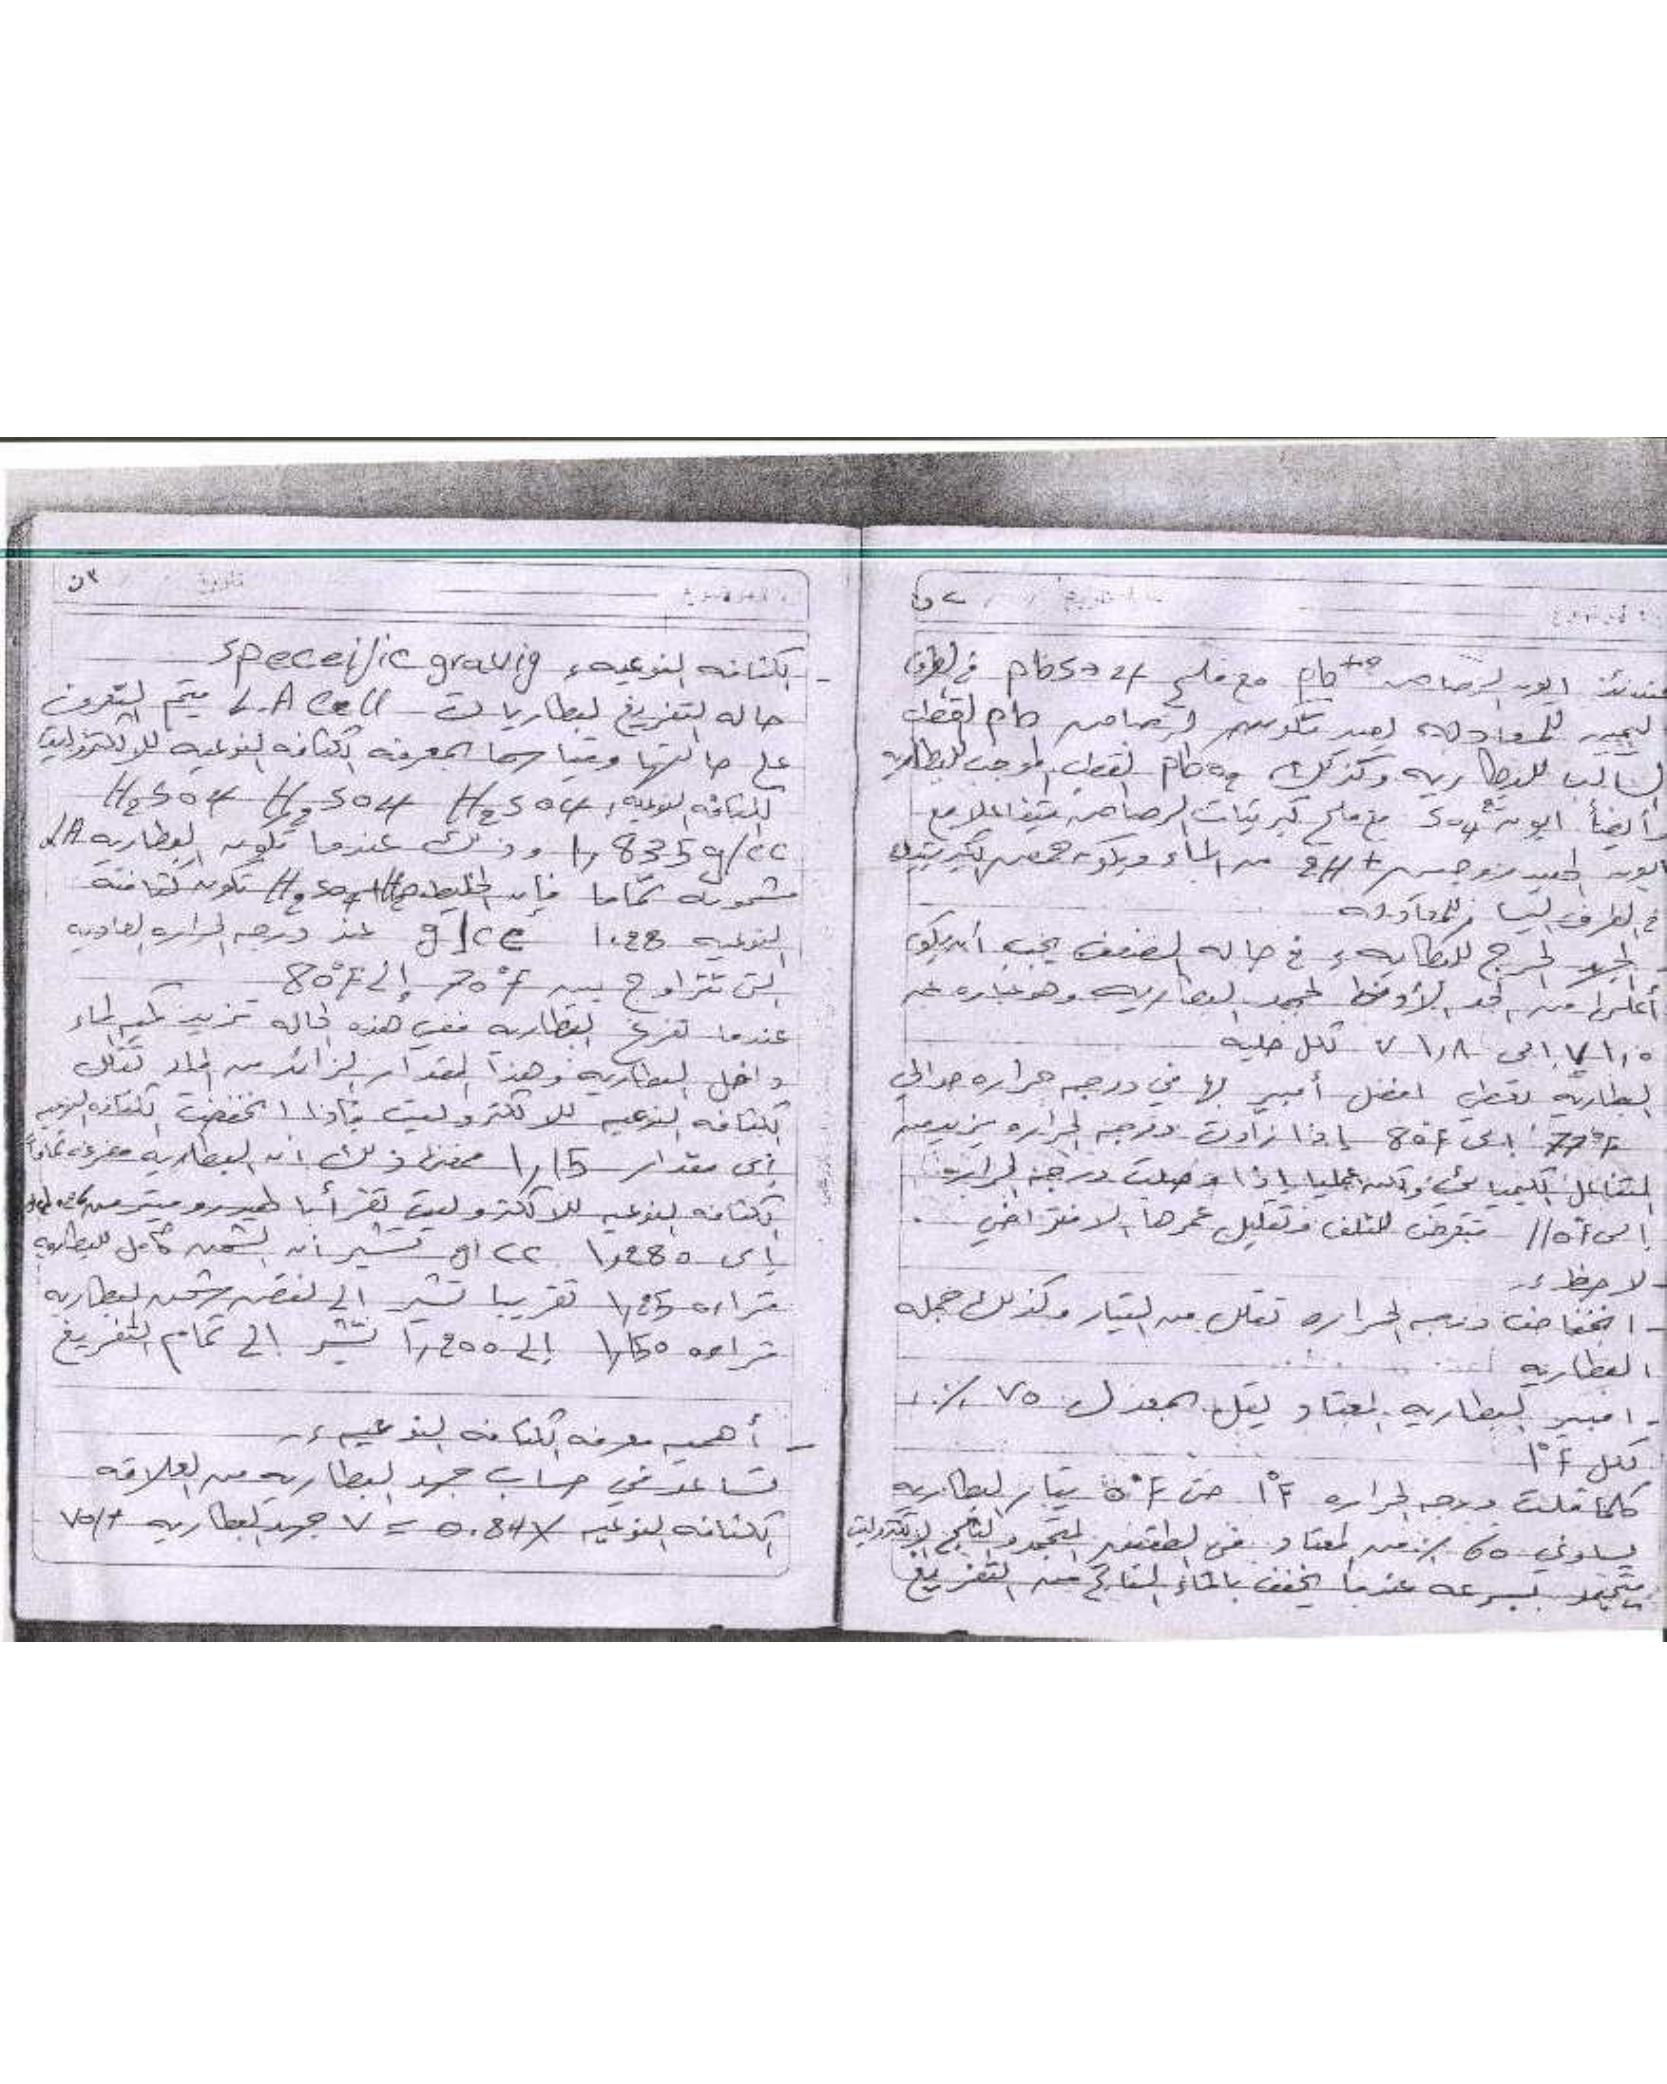 ن ٢
عندئذ ايون الرصاص Pb++ مع ملح PbSO4 في الطرف
اليمين للمعادلة يعيد تكوين الرصاص Pb القطب
السالب للبطاريه وكذلك PbO2 القطب الموجب للبطاريه
وأيضاً ايون SO4 مع ملح كبريتات الرصاص متفاعلا مع
ايون الهيدروجين 2H+ من الماء ويكون حمض الكبريتيك
في الطرف اليسار للمعادله
الجهد الحرج للبطاريه: في حاله الضعف يجب أن يكون
أعلى من الحد الأوسط لجهد البطاريه وهو عباره عن
١,٥ V الى ١,٨ V لكل خليه
البطاريه تعطي افضل أمبير لها في درجه حراره حوالي
77°F الى 80°F إذا زادت درجه الحراره يزيد من
التفاعل الكيميائي ولكن عمليا إذا وصلت درجه الحراره
الى 110°F تتعرض للتلف وتقليل عمرها الافتراضي .
لاحظ:-
- انخفاض درجه الحراره تقلل من التيار وكذلك جهد
البطاريه
- امبير البطاريه المعتاد يقل بمعدل ٧٥ ٪
لكل 1°F
كلما قلت درجه الحراره 1°F حتى 0°F تيار البطاريه
يساوي 60 ٪ من المعتاد في الطقس المتجمد والثلج الإلكتروليت
يتجمد بسرعه عندما يخفف بالماء الناتج من التفريغ
ن ٣
- الكثافه النوعيه: speceific gravig
حاله التفريغ لبطاريات L.A Cell يتم التعرف
على حالتها وقياسها بمعرفه الكثافه النوعيه للالكتروليت
الكثافه النوعيه: H2SO4 H2SO4 H2SO4
1,8335g/cc وذلك عندما تكون البطاريه LA
مشحونه تماما فإن الخليط H2SO4+H2O تكون كثافته
النوعيه 1.28 g/cc عند درجه الحراره العاديه
التى تتراوح بين 70°F إلى 80°F
عندما تفرغ البطاريه ففي هذه الحاله تزيد كميه الماء
داخل البطاريه وهذا المقدار الزائد من الماء تقلل
الكثافه النوعيه للالكتروليت فإذا انخفضت الكثافه النوعيه
إلى مقدار 1,15 معنى ذلك ان البطاريه مفرغه تماماً
الكثافه النوعيه للالكتروليت تقرأ بالهيدروميتر من
إلى 1,280 g/cc تشير أن الشحن كامل للبطاريه
قراءه 1,25 تقريبا تشير الى نقص شحن البطاريه
قراءه 1,150 إلى 1,200 تشير الى تمام التفريغ
- أهميه معرفه الكثافه النوعيه:-
تساعد في حساب جهد البطاريه من العلاقه
الكثافه النوعيه V = 0.84X جهد البطاريه volt